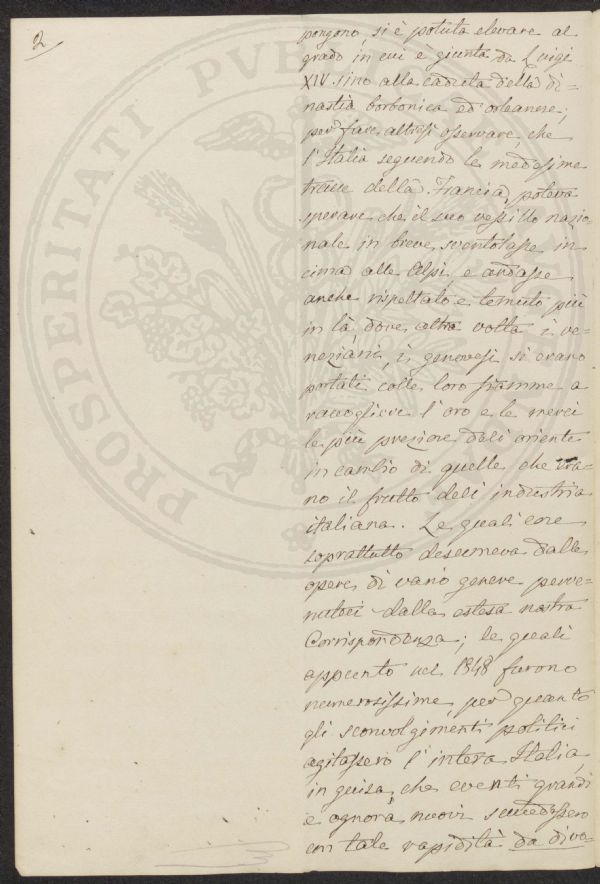 2
pongono, si è potuta elevare al
grado in cui è giunta da Luigi
XIV. sino alla caduta della di=
nastia borbonica ed orleanese;
per fare altresì osservare, che
l'Italia seguendo le medesime
tracce della Francia, poteva
sperare che il suo vessillo nazio
nale in breve sventolasse in
cima alle Alpi, e andasse
anche rispettato e temuto più
in là dove altra volta i ve=
neziani, i genovesi si erano
portati colle loro fiamme a
raccogliervi l'oro e le merci
le più preziose dell'oriente
in cambio di quelle che era=
no il frutto dell'industria
italiana. Le quali cose
soprattutto desumeva dalle
opere di vario genere perve=
nuteci dalla estesa nostra
Corrispondenza; le quali
appunto nel 1848 furono
numerosissime, per quanto
gli sconvolgimenti politici
agitassero l'intera Italia,
in guisa, che eventi grandi
e ognora nuovi succedessero
con tale rapidità da diva=
PROSPERITATI PVBLI